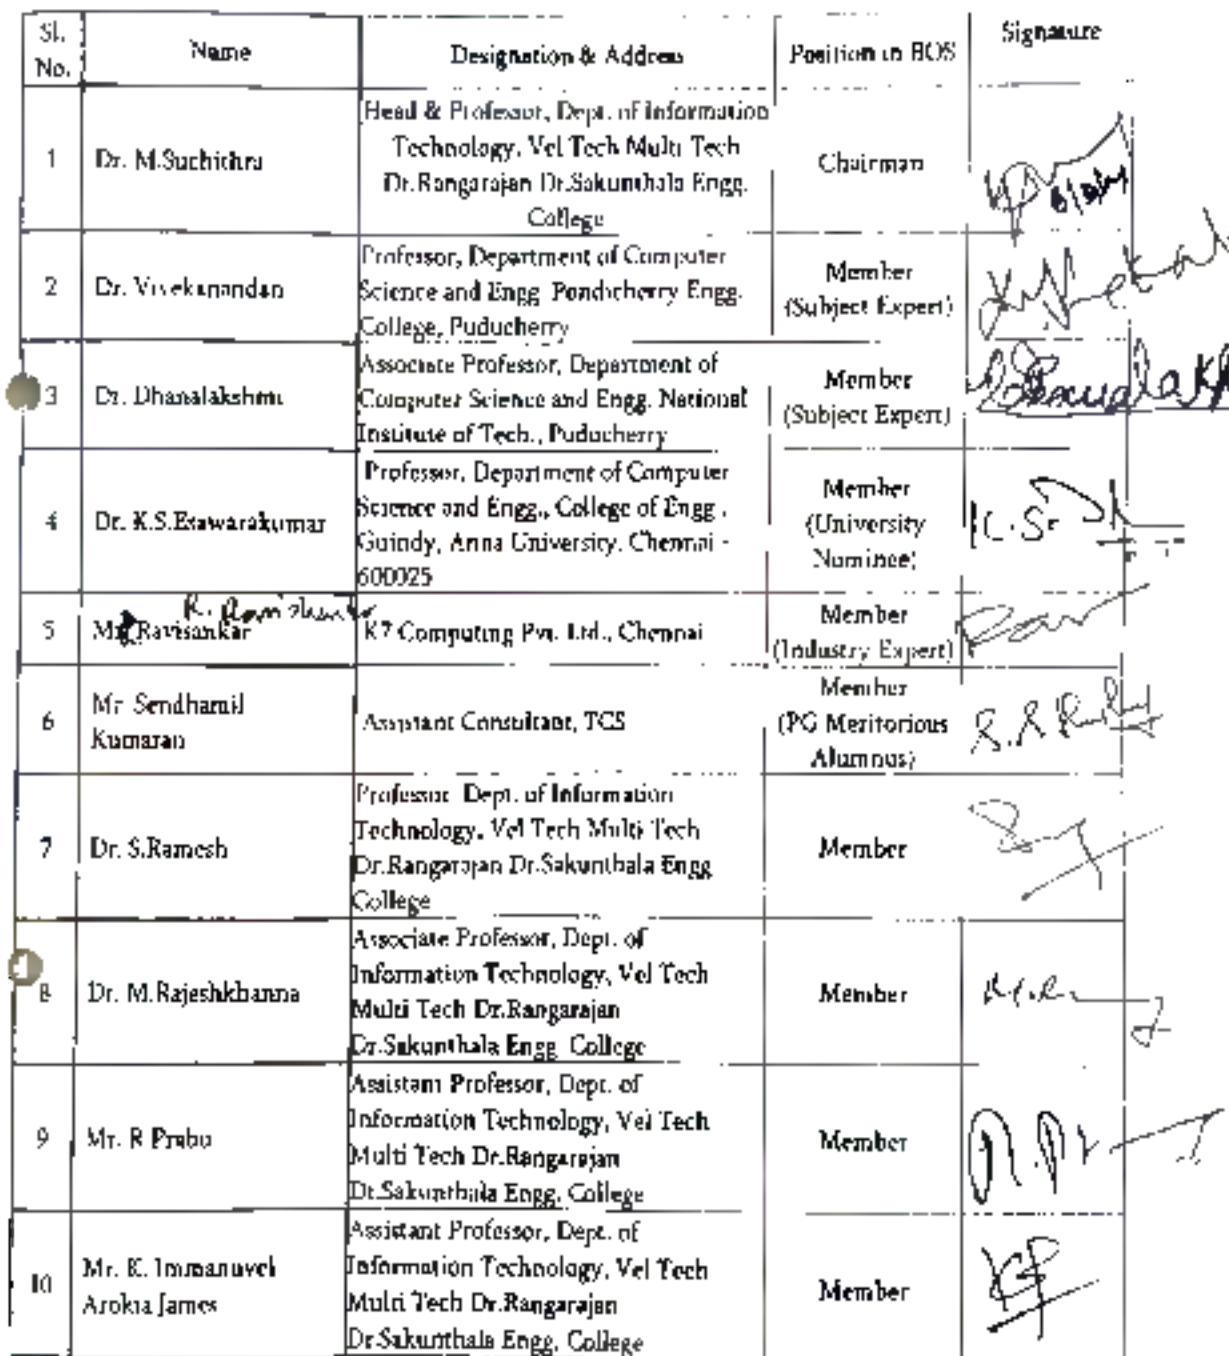 Sl.
No.
Name
Designation & Address
Position in BOS
Signature
1
Dr. M.Suchithra
Head & Professor, Dept. of Information
Technology, Vel Tech Multi Tech
Dr.Rangarajan Dr.Sakunthala Engg.
College
Chairman
2
Dr. Vivekanandan
Professor, Department of Computer
Science and Engg. Pondicherry Engg.
College, Puducherry
Member
(Subject Expert)
3
Dr. Dhanalakshmi
Associate Professor, Department of
Computer Science and Engg. National
Institute of Tech., Puducherry
Member
(Subject Expert)
4
Dr. K.S.Eswarakumar
Professor, Department of Computer
Science and Engg., College of Engg.,
Guindy, Anna University, Chennai -
600025
Member
(University
Nominee)
K.S.
5
Ravisankar
K7 Computing Pvt. Ltd., Chennai
Member
(Industry Expert)
6
Mr Sendhamil
Kumaran
Assistant Consultant, TCS
Member
(PG Meritorious
Alumnus)
7
Dr. S.Ramesh
Professor Dept. of Information
Technology, Vel Tech Multi Tech
Dr.Rangarajan Dr.Sakunthala Engg
College
Member
8
Dr. M.Rajeshkhanna
Associate Professor, Dept. of
Information Technology, Vel Tech
Multi Tech Dr.Rangarajan
Dr.Sakunthala Engg College
Member
9
Mr. R Prabu
Assistant Professor, Dept. of
Information Technology, Vel Tech
Multi Tech Dr.Rangarajan
Dr.Sakunthala Engg. College
Member
10
Mr. K. Immanuvel
Arokia James
Assistant Professor, Dept. of
Information Technology, Vel Tech
Multi Tech Dr.Rangarajan
Dr.Sakunthala Engg. College
Member